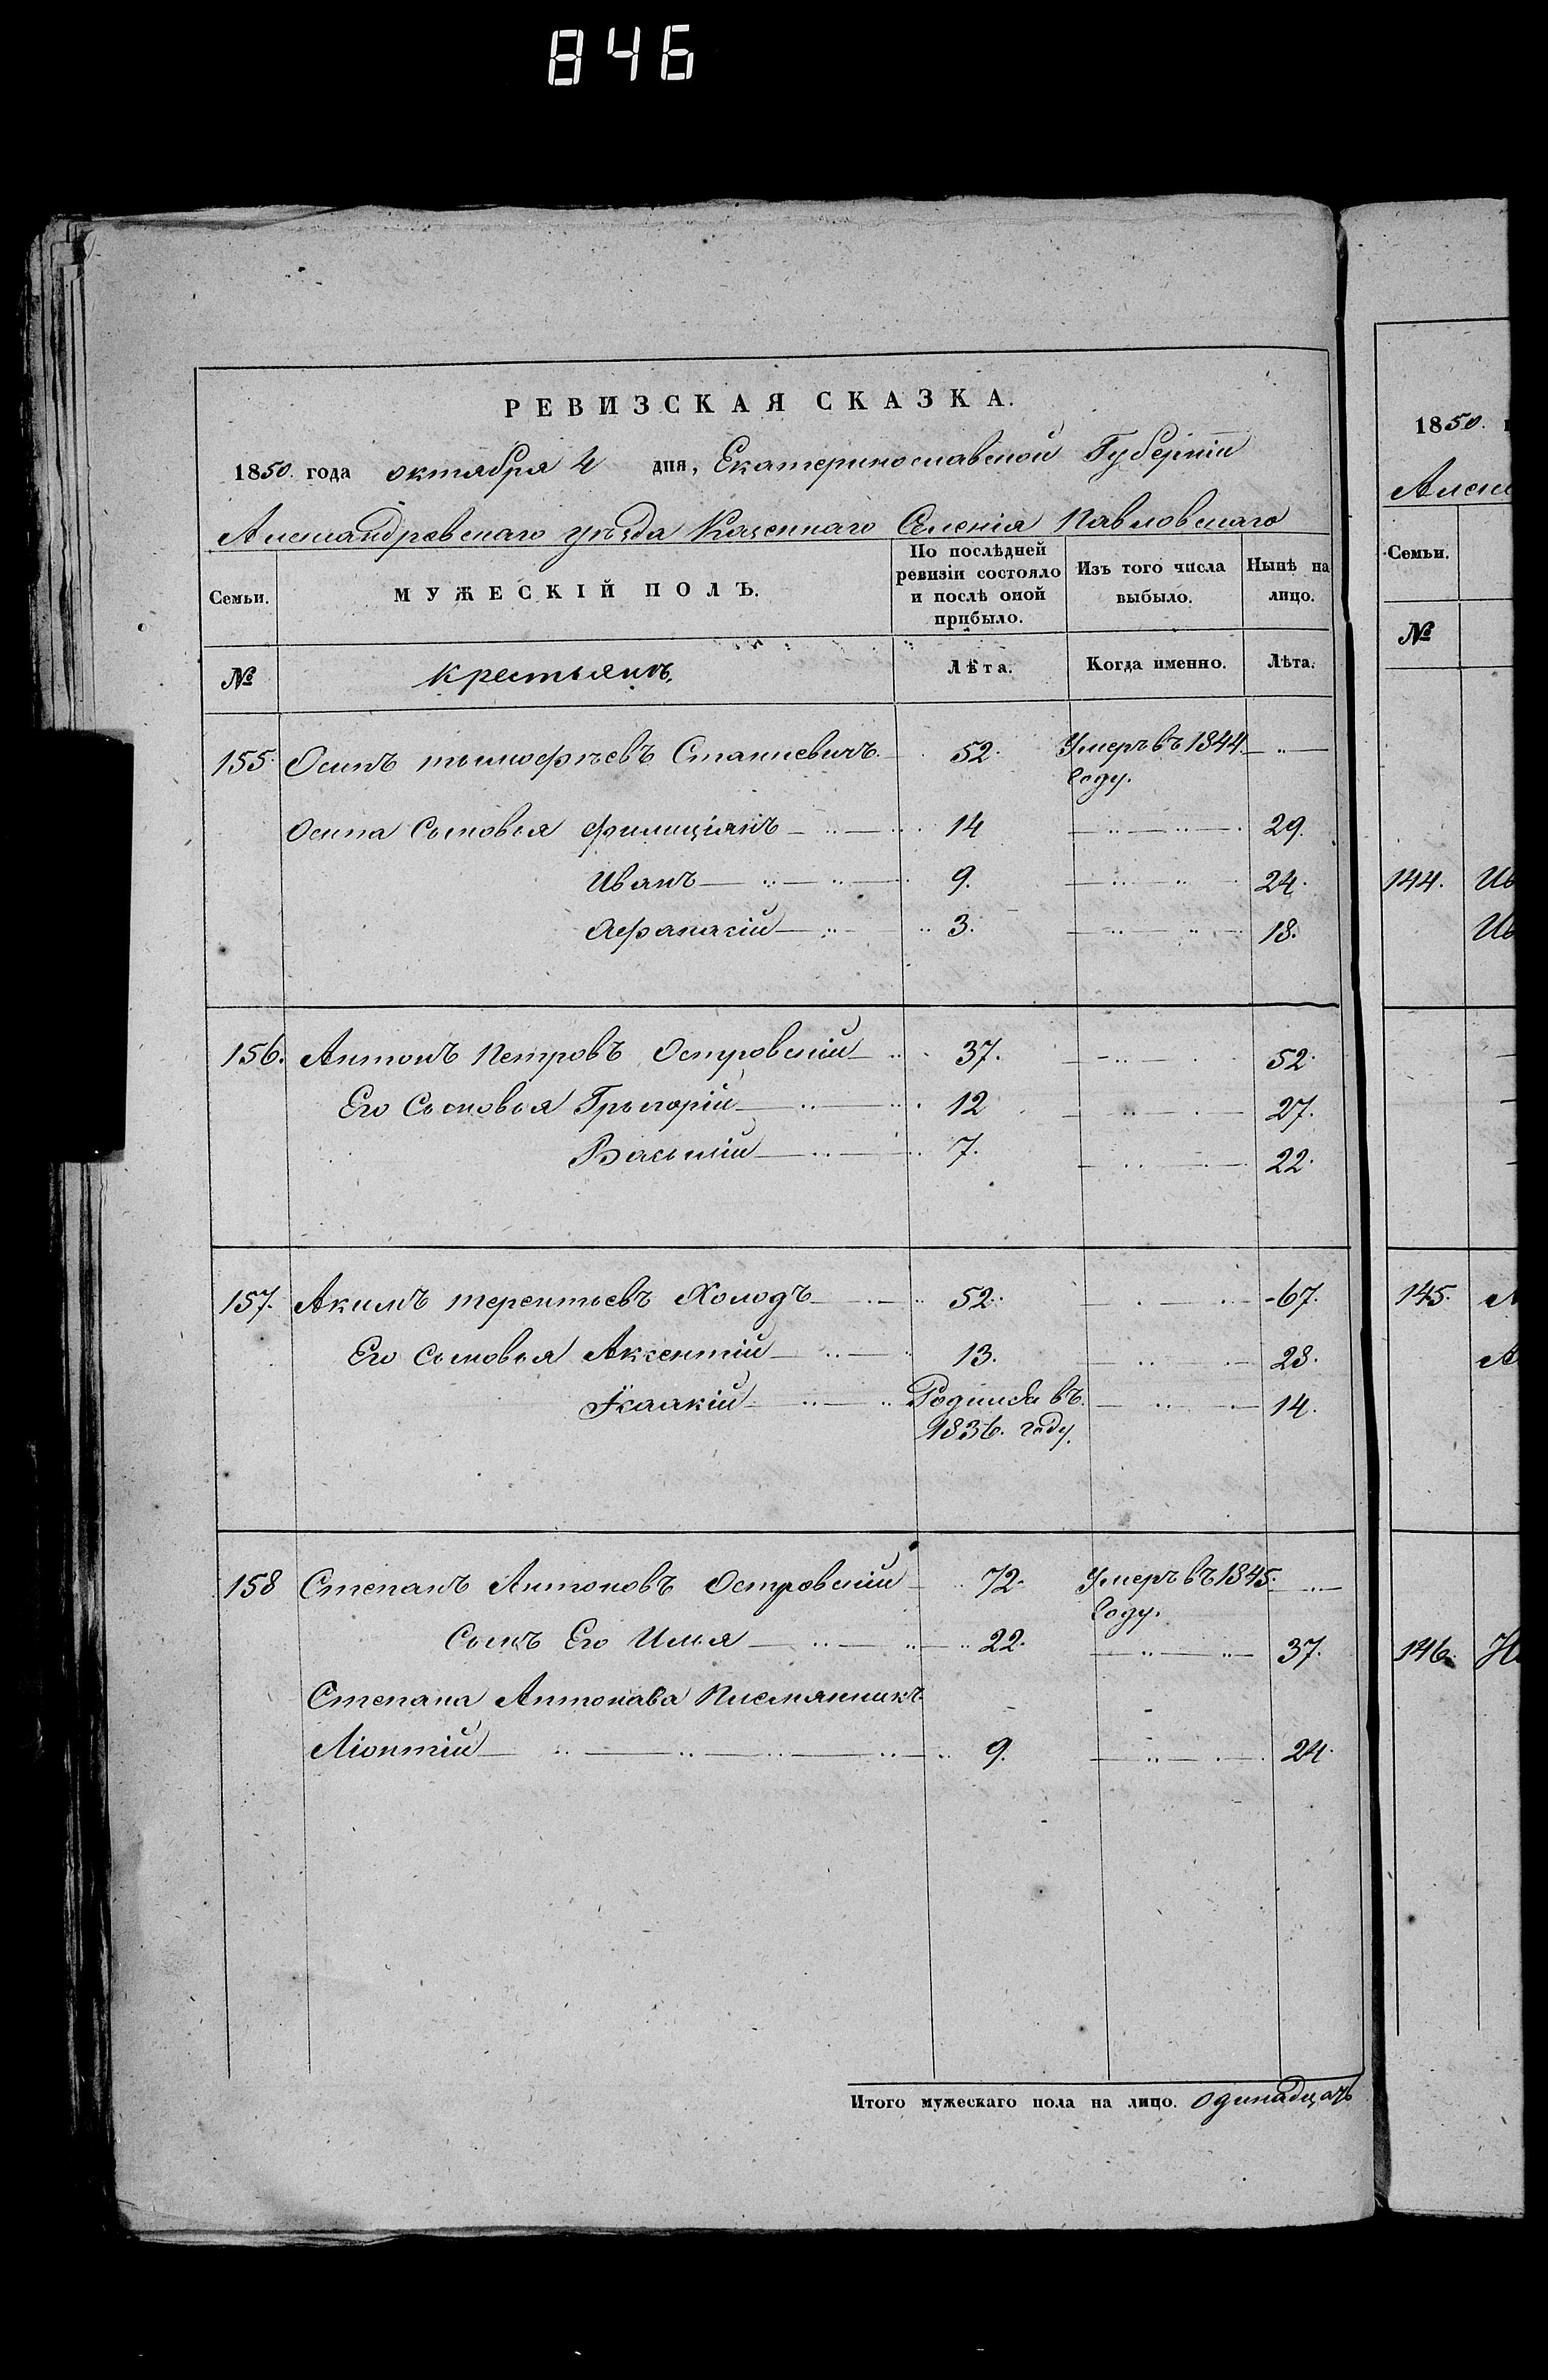 846
РЕВИЗСКАЯ СКАЗКА.
1850. года октября 4 дня, Екатеринославской Губерніи
Александровскаго уѣзда Казеннаго Селенія Павловскаго
Семьи. МУЖЕСКІЙ ПОЛЪ. По послѣдней ревизіи состояло и послѣ оной прибыло. Изъ того числа выбыло. Нынѣ на лицо.
№ Крестьянъ. Лѣта. Когда именно. Лѣта.
155. Осипъ тимофѣевъ Станкевичъ 52. Умеръ въ 1844
году.
Осипа Сыновья филиціянъ 14 29.
Иванъ 9. 24.
Афанасій 3. 18.
156. Антонъ Петровъ Островскій 37. 52.
Его Сыновья Грыгорій 12 27.
Василій 7. 22.
157. Акимъ терентьевъ Холодъ 52. 67.
Его Сыновья Аксентій 13. 28.
Родился въ 14.
1836. году.
158 Степанъ Антоновъ Островскій 72. Умеръ въ 1845.
году.
Сынъ Его Илья 22. 37.
Степана Антонава Племянникъ
Ліонтій 9. 24.
Итого мужескаго пола на лицо. одинадцать
1850.
Семьи.
№
144. Ив
Ив
145. А
А
146.